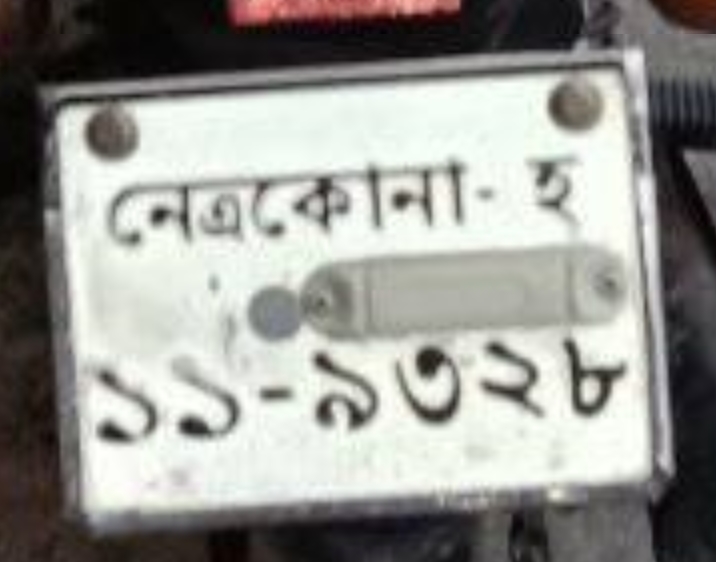 নেত্রকোনা- হ
১১-৯৩২৮